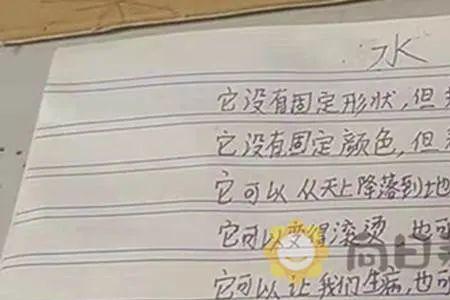 水
它没有固定形状,但
它没有固定颜色,但
它可以从天上降落到地
它可以变得滚烫,也可
它可以让我们生病,也可
向日